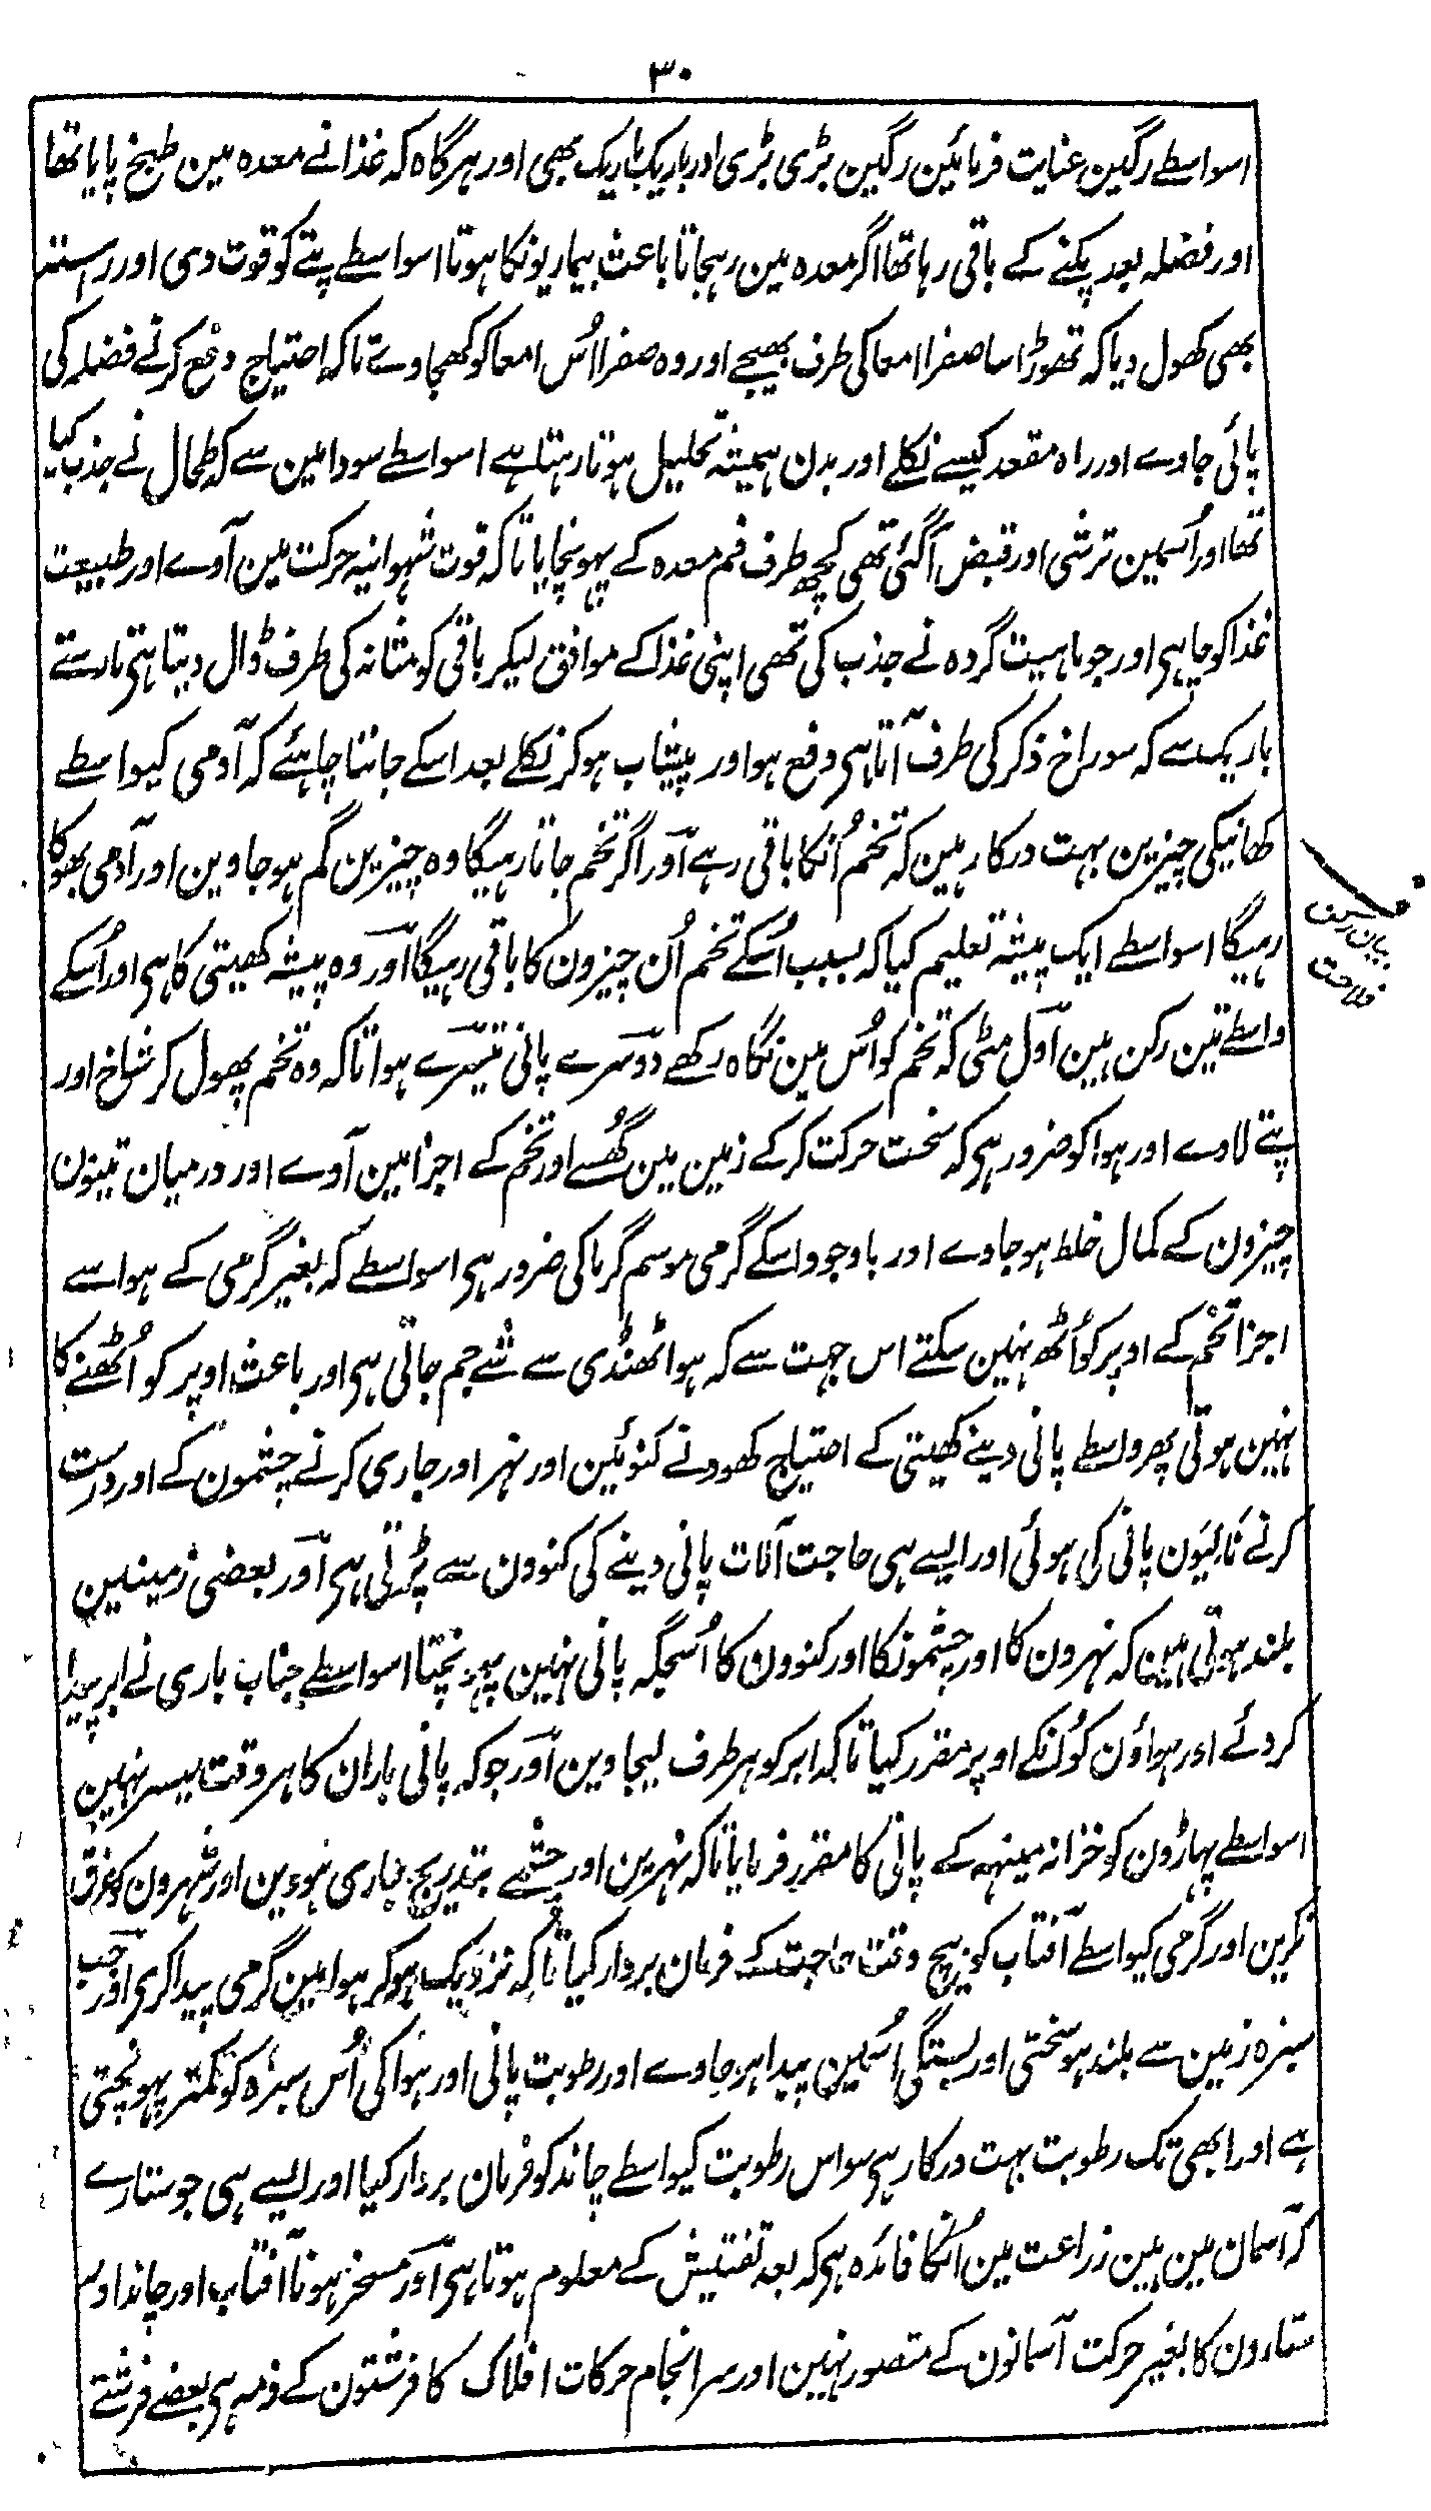 ۳۰
اسواسطے رگین عنایت فرمائین رگین بڑی بڑی اور باریک باریک بھی اور ہرگاہ کہ غذانے معدہ مین طبخ پایا تھا
اور فضلہ بعد پکنے کے باقی رہا تھا اگر معدہ مین رہجاتا باعث بیماریونکا ہوتا اسواسطے پتے کو قوت دی اور راستہ
بھی کھول دیا کہ تھوڑا سا صفرا امعا کی طرف بھیجے اور وہ صفرا اُس امعا کو کھجاوے تاکہ احتیاج دفع کرنے فضلہ کی
پائی جاوے اور راہ مقعد کیسے نکلے اور بدن ہمیشہ تحلیل ہوتا رہتا ہے اسواسطے سودا مین سے کہ طحال نے جذب کیا
تھا اور اُسمین ترشی اور قبض آگئی تھی کچھ طرف فم معدہ کے پہونچایا تاکہ قوت شہوانیہ حرکت مین آوے اور طبیعت
غذا کو چاہی اور جو ماہیت گردہ نے جذب کی تھی اپنی غذا کے موافق لیکر باقی کو مثانہ کی طرف ڈال دیتا ہی تا رستے
باریک سے کہ سوراخ ذکر کی طرف آتا ہی دفع ہو اور پیشاب ہو کر نکلے بعد اسکے جاننا چاہئے کہ آدمی کیواسطے
کھانیکی چیزین بہت درکار ہین کہ تخم اُنکا باقی رہے اور اگر تخم جاتا رہیگا وہ چیزین گم ہو جاوین اور آدمی بھوکا
رہیگا اسواسطے ایک پیشہ تعلیم کیا کہ بسبب اُسکے تخم اُن چیزون کا باقی رہیگا اور وہ پیشہ کھیتی کا ہی اور اُسکے
بیان رکن
فلاحت
واسطے تین رکن ہین اول مٹی کہ تخم کو اُس مین نگاہ رکھے دوسرے پانی تیسرے ہوا تاکہ وہ تخم پھول کر شاخ اور
پتے لاوے اور ہوا کو ضرور ہی کہ سخت حرکت کر کے زمین مین گھسے اور تخم کے اجزا مین آوے اور درمیان تینون
چیزون کے کمال خلط ہو جاوے اور باوجود اسکے گرمی موسم گرما کی ضرور ہی اسواسطے کہ بغیر گرمی کے ہوا سے
اجزا تخم کے اوپر کو اُٹھ نہین سکتے اس جہت سے کہ ہوا ٹھنڈی سے شے جم جاتی ہی اور باعث اوپر کو اُٹھنے کا
نہین ہوتی پھر واسطے پانی دینے کھیتی کے احتیاج کھودنے کنوئین اور نہر اور جاری کرنے چشمون کے اور درست
کرنے نالیون پانی کی ہوئی اور ایسے ہی حاجت آلات پانی دینے کی کنوون سے پڑتی ہی اور بعضی زمینین
بلند ہوتی ہین کہ نہرون کا اور چشمونکا اور کنوون کا اُسجگہ پانی نہین پہونچتا اسواسطے جناب باری نے ابر پیدا
کر دئے اور ہواؤن کو اُنکے اوپر مقرر کیا تاکہ ابر کو ہر طرف لیجاوین اور جو کہ پانی باران کا ہر وقت میسر نہین
اسواسطے پہاڑون کو خزانہ مینہہ کے پانی کا مقرر فرمایا تاکہ نہرین اور چشمے بتدریج جاری ہووین اور شہرون کو غرق
نکرین اور گرمی کیواسطے آفتاب کو بیچ وقت حاجت کے فرمان بردار کیا تاکہ نزدیک ہو کر ہوا مین گرمی پیدا کری اور جب
سبزہ زمین سے بلند ہو سختی اور بستگی اُسمین پیدا ہو جاوے اور رطوبت پانی اور ہوا کی اُس سبزہ کو کمتر پہونچتی
ہے اور ابھی تک رطوبت بہت درکار ہی سو اس رطوبت کیواسطے چاند کو فرمان بردار کیا اور ایسے ہی جو ستارے
کہ آسمان مین ہین زراعت مین اُنکا فائدہ ہی کہ بعد تفتیش کے معلوم ہوتا ہی اور مسخر ہونا آفتاب اور چاند اور
ستارون کا بغیر حرکت آسمانون کے متصور نہین اور سرانجام حرکات افلاک کا فرشتون کے ذمہ ہی بعضے فرشتے